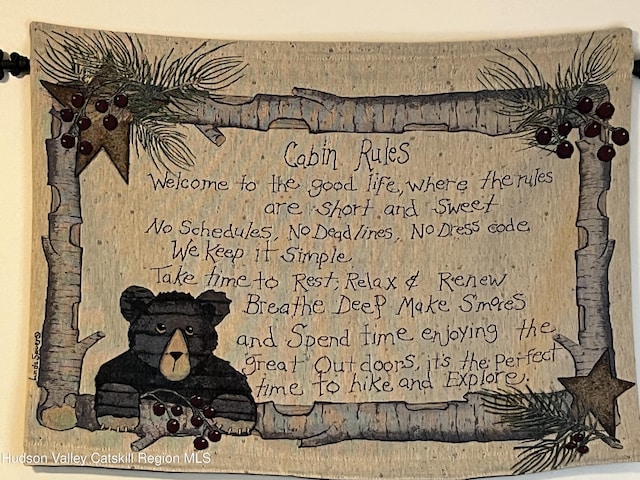 Cabin Rules
Welcome to the good life, where the rules
are short and Sweet
No Schedules, No Deadlines, No Dress code
We Keep it Simple
Take time to Rest, Relax & Renew
Breathe Deep Make S'mores
and Spend time enjoying the
great Outdoors, it's the Perfect
time to hike and Explore.
Hudson Valley Catskill Region MLS